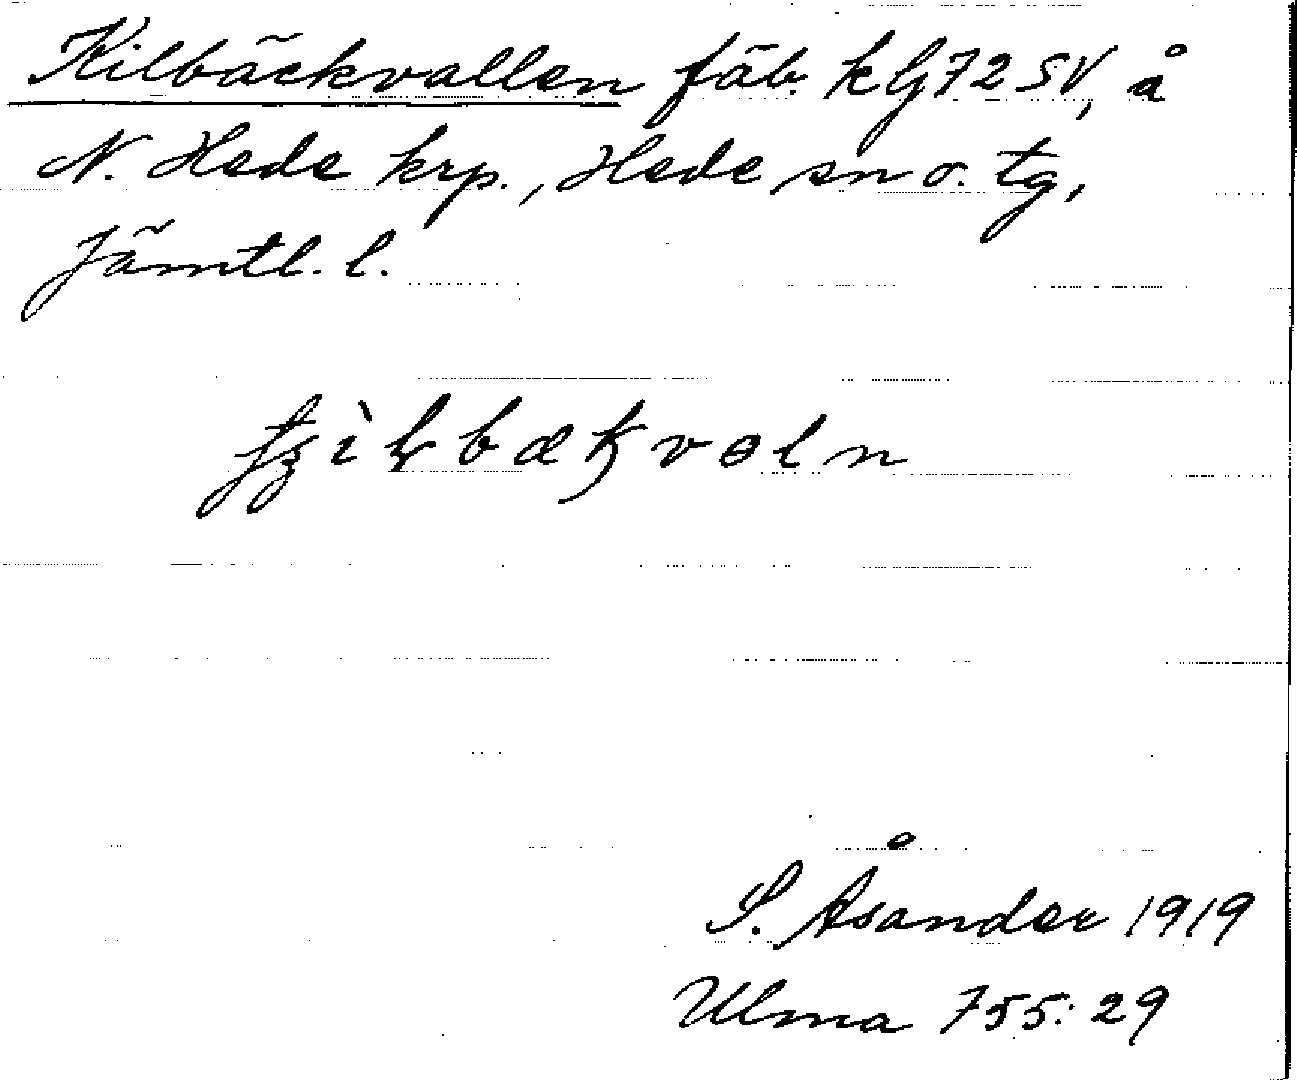 Kilbäckvallen fäb. kbj 72 SV, å
N. Hede krp., Hede sn o. tg,
Jämtl. l.
S. Åsander 1919
Ulma 755:29